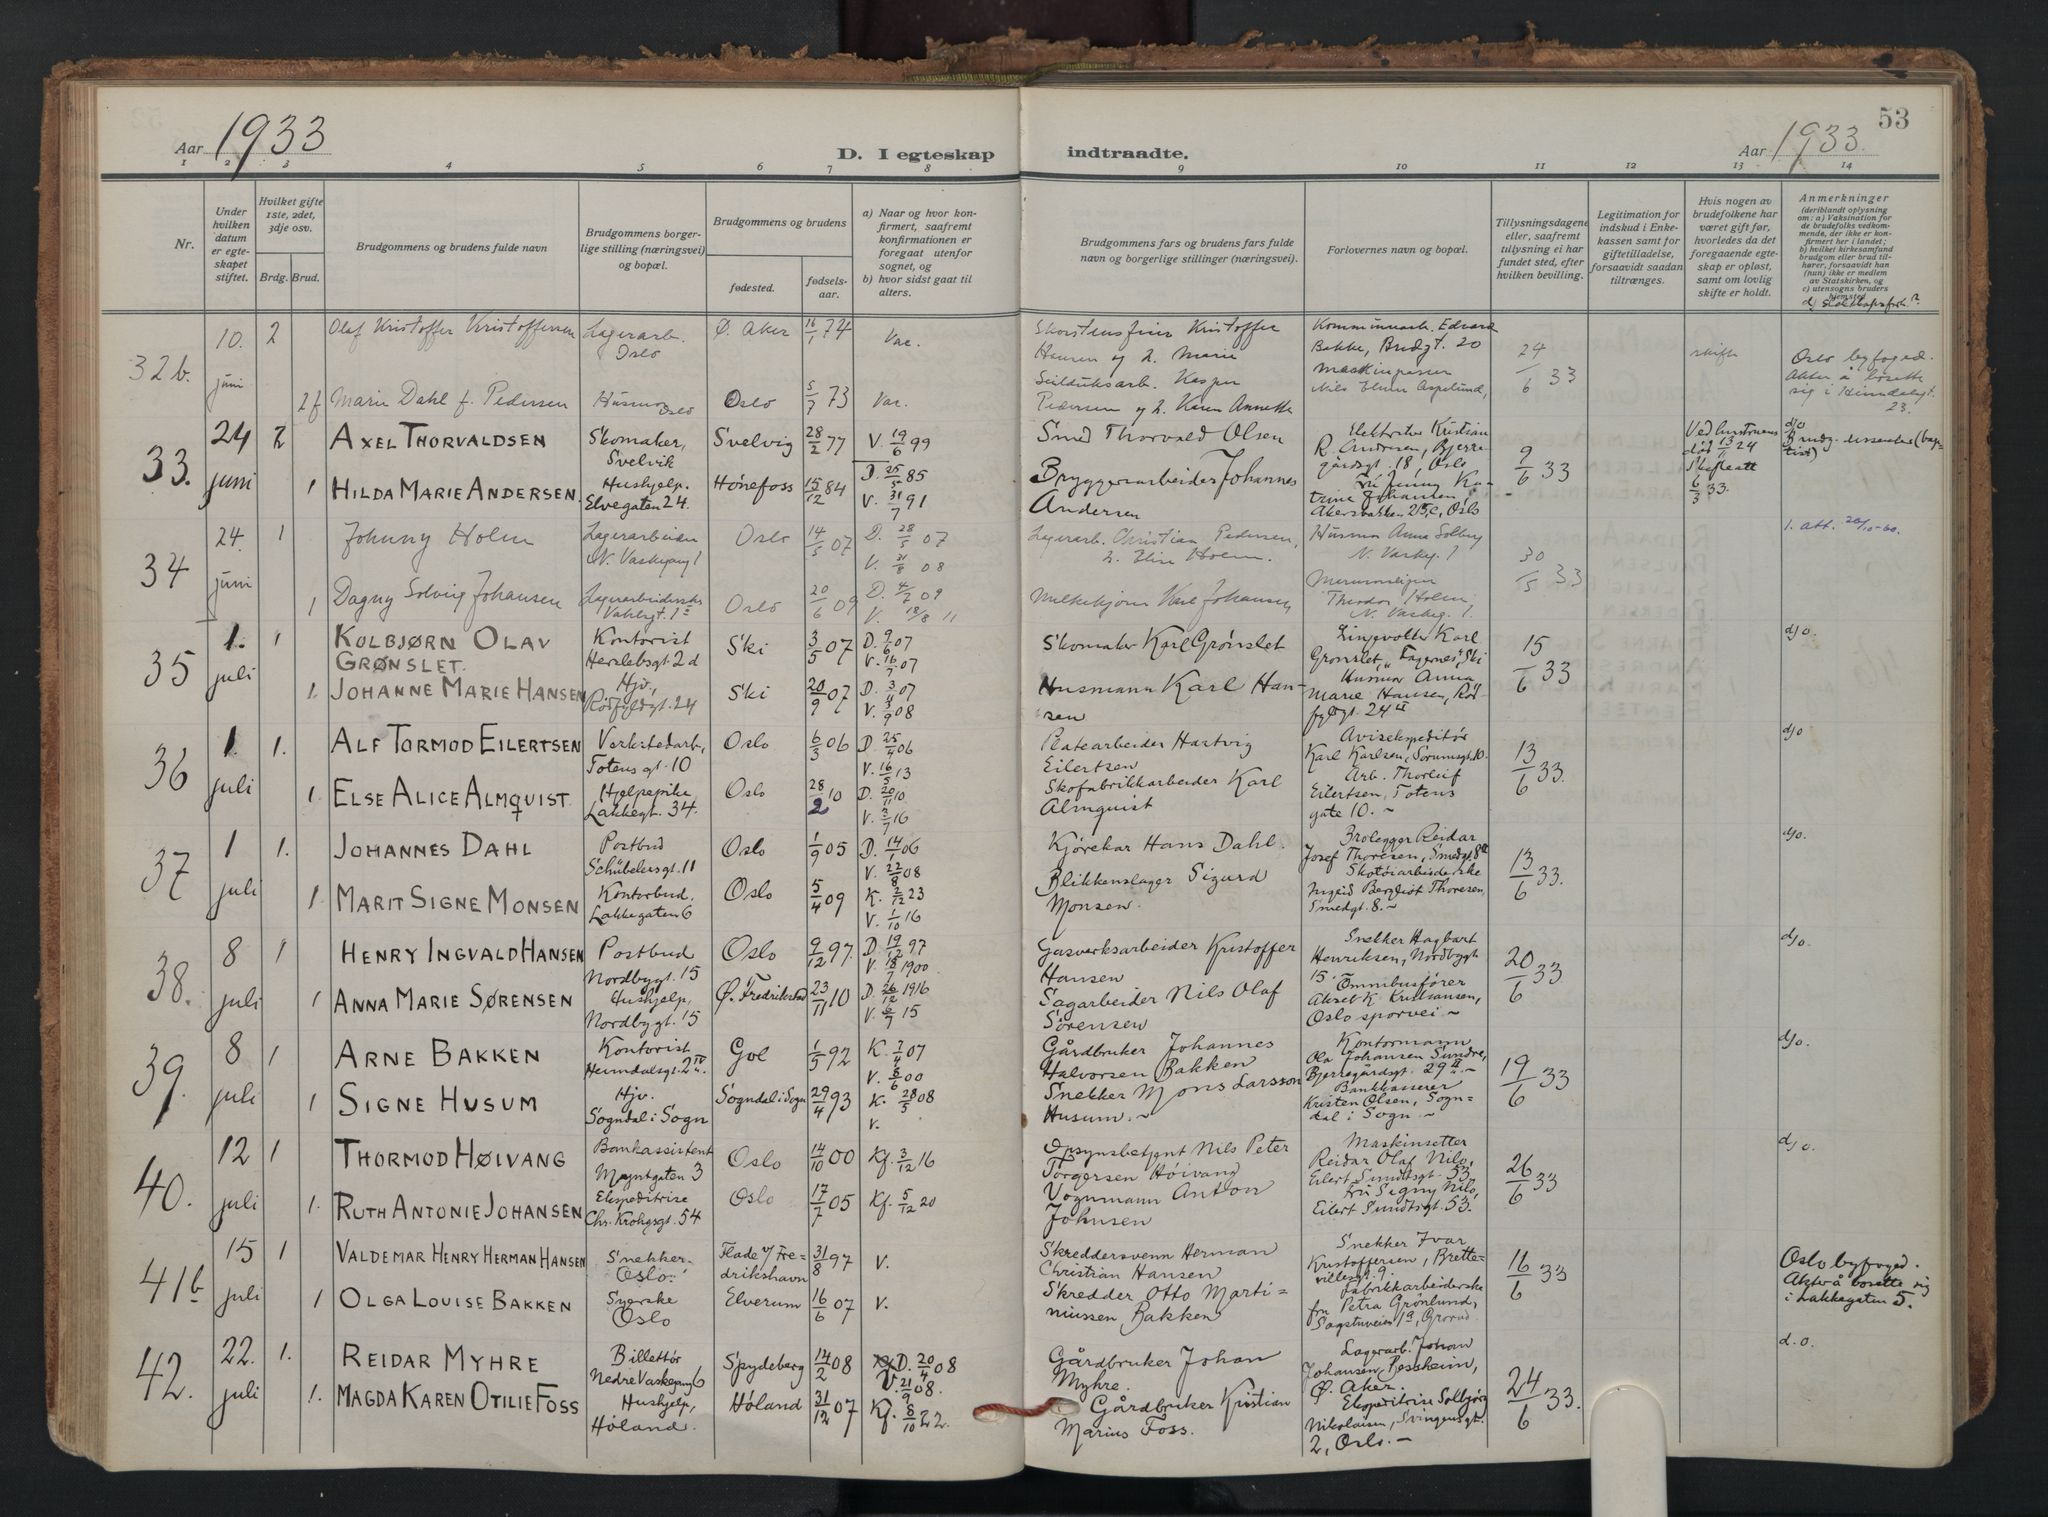 Aar 1933
D. I egteskap
indtraadte.
53
Aar 1933.
1 2 3 4 5 6 7 8 9 10 11 12 13 14
Nr.
Under hvilken datum er egteskapet stiftet.
Hvilket gifte 1ste, 2det, 3dje osv.
Brdg. Brud.
Brudgommens og brudens fulde navn
Brudgommens borgerlige stilling (næringsvei) og bopæl.
Brudgommens og brudens
fødested.
fødselsaar.
a) Naar og hvor konfirmert, saafremt konfirmationen er foregaat utenfor sognet, og
b) hvor sidst gaat til alters.
Brudgommens fars og brudens fars fulde navn og borgerlige stillinger (næringsvei).
Forlovernes navn og bopæl.
Tillysningsdagene eller, saafremt tilysning ei har fundet sted, efter hvilken bevilling.
Legitimation for indskud i Enkekassen samt for giftetilladelse, forsaavidt saadan tiltrænges.
Hvis nogen av brudefolkene har været gift før, hvorledes da det foregaaende egteskap er opløst, samt om lovlig skifte er holdt.
Anmerkninger
(deriblandt oplysning om: a) Vaksination for de brudefolks vedkommende, der ikke er konfirmert her i landet; b) hvilket kirkesamfund brudgom eller brud tilhører, forsaavidt han (hun) ikke er medlem av Statskirken, og c) utensogns bruders hjemsted
32b. 10. juni 2 Olaf Kristoffer Kristoffersen Lagerarb. Oslo Ø. Aker 16/1 74 Vac.
Hansen og h. Marie
Kommunearb. Edvard Bakke, Brugt. 20
24/6 33
skifte
Oslo byfoged. Akter å bosette sig i Heimdalsgt. 23.
2f Marie Dahl f. Pedersen Husmor Oslo Oslo 5/7 73 Vac.
Seilduksarb. Kasper Pedersen og h. Karen Annette
Maskinpasser Nils Elmer Aspelund,
33. 24 juni 2 Axel Thorvaldsen Skomaker, Svelvik Svelvig 28/2 77 V. 19/6 99
Smed Thorvald Olsen
Elektriker Kristian R. Andresen, Bjerregårdsgt. 18, Oslo
9/6 33
Ved hustruens død 13/11 24 Skifteatt 6/3 33.
d/o Brudg. dissenter (baptist)
1 Hilda Marie Andersen Hushjelp. Elvegaten 24. Hønefoss 15/12 84 D. 25/5 85 V. 31/7 91
Bryggeriarbeider Johannes Andersen
Fru Jenny Katrine Johansen, Akersbakken 215, Oslo
34 24. juni 1 Johnny Holm Lagerarbeider N. Vaskegang 1 Oslo 14/5 07 D. 28/5 07 V. 31/8 08
Lagerarb. Christian Pedersen, h. Elise Holm.
Husmor Anna Solberg N. Vaskeg. 1
30/5 33
1. att. 20/10-60.
1 Dagny Solvig Johansen Lagerarbeiderske Vahlsgt. 1 Oslo 20/6 09 D. 4/7 09 V. 18/8 11
Melkekjører Karl Johansen
Thodor Holm N. Vaskeg. 1.
35 1. juli 1 Kolbjørn Olav Grønslet. Kontorist Herslebsgt. 2 d Ski 3/5 07 D. 9/6 07 V. 16/7 07
Skomaker Karl Grønslet
Karl Grønslet, "Fagernes", Ski
15/6 33
d/o.
1. Johanne Marie Hansen Hjv., Rødfyldgt. 24 Ski 20/9 07 D. 3/4 07 V. 3/9 08
Husmann Karl Hansen
Husmor Anna Marie Hansen, Rødfyldgt. 24 II
36 1. juli 1. Alf Tormod Eilertsen Verkstedarb., Totens gt. 10 Oslo 6/3 06 D. 25/4 06 V. 16/5 13
Platearbeider Hartvig Eilertsen
Avisekspeditør Karl Karlsen, Sorumsgt. 10.
13/6 33.
d/o
1. Else Alice Almquist. Hjelpepike Lakkegt. 34. Oslo 28/2 10 D. 20/11 10 V. 3/7 16
Skofabrikkarbeider Karl Almquist
Arb. Thorleif Eilertsen, Totens gate 10. -
37 1 juli 1. Johannes Dahl Postbud Schübelersgt. 11 Oslo 1/9 05 D. 14/1 06 V. 22/8 08
Kjørekar Hans Dahl.
Brolegger Reidar Josef Thoresen, Smedgt. 8 II
13/6 33.
d/o.
1. Marit Signe Monsen Kontorbud. Lakkegaten 6 Oslo 5/4 09 K. 2/12 23 V. 1/10 16
Blikkenslager Sigurd Monsen.
Skotøiarbeiderske Ingrid Bergliot Thoresen, Smedgt. 8. -
38. 8 juli 1 Henry Ingvald Hansen Postbud Nordbygt. 15 Oslo 9/12 97. D. 19/12 97 V. 18/7 1900
Gasverksarbeider Kristoffer Hansen
Snekker Hagbart Henriksen, Nordbygt 15.
20/6 33
d/o.
1 Anna Marie Sørensen Hushjelp, Nordbygt. 15 Ø. Fredrikstad 23/11 10 D. 26/12 1916 V. 6/7 15
Sagarbeider Nils Olaf Sørensen
Omnibusfører Aksel K. Kristiansen, Oslo sporvei -
39. 8 juli 1 Arne Bakken Kontorist Heimdalsgt. 2 IV Gol 1/5 92 K. 7/4 07 V. 8/6 00
Gårdbruker Johannes Halvorsen Bakken
Kontormann Ola Johansen Sundre, Bjerregårdsgt. 29 II. -
19/6 33
d/o.
1 Signe Husum Hjv. Sogndal i Sogn Sogndal i Sogn 29/4 93 K. 28/5 08 V.
Snekker Mons Larsson Husum. -
Bankkasserer Kristen Olsen, Sogndal i Sogn. -
40. 12 juli 1 Thormod Høivang Bankassistent Myntgaten 3 Oslo 14/10 00 Kf. 3/12 16
Opsynsbetjent Nils Peter Torgersen Høivang
Maskinsetter Reidar Olaf Nilo, Eilert Sundtsgt. 53
26/6 33
d/o.
1. Ruth Antonie Johansen Ekspeditrise Chr. Krohgsgt. 54 Oslo 17/7 05 Kf. 5/12 20
Vognmann Anton Johnsen
Fru Signy Nilo, Eilert Sundtsgt. 53.
41b 15 juli 1 Valdemar Henry Herman Hansen Snekker. Oslo. Flade v/ Fredrikshavn 31/8 97 V.
Skreddersvenn Herman Christian Hansen
Snekker Ivar Kristoffersen, Brettevillesgt. 9.
16/6 33
Oslo byfoged. Akter å bosette sig i Lakkegaten 5.
1 Olga Louise Bakken Syerske Oslo Elverum 16/6 07 V.
Skredder Otto Martiniussen Bakken
Fabrikkarbeiderske fru Petra Grønlund, Sagstuveien 1a, Grorud.
42. 22. juli 1. Reidar Myhre Billettør Nedre Vaskegang 6 Spydeberg 14/2 08 D. 20/4 08 V. 21/9 08.
Gårdbruker Johan Myhre.
Lagerarb. Johan Johansen, Bessheim, Ø. Aker.
24/6 33.
d.o.
1. Magda Karen Otilie Foss Hushjelp, Høland. Høland 31/12 07 Kf. 8/10 22.
Gårdbruker Kristian Marius Foss.
Ekspeditrise Solbjørg Nikolaisen, Svingensgt. 2, Oslo. -